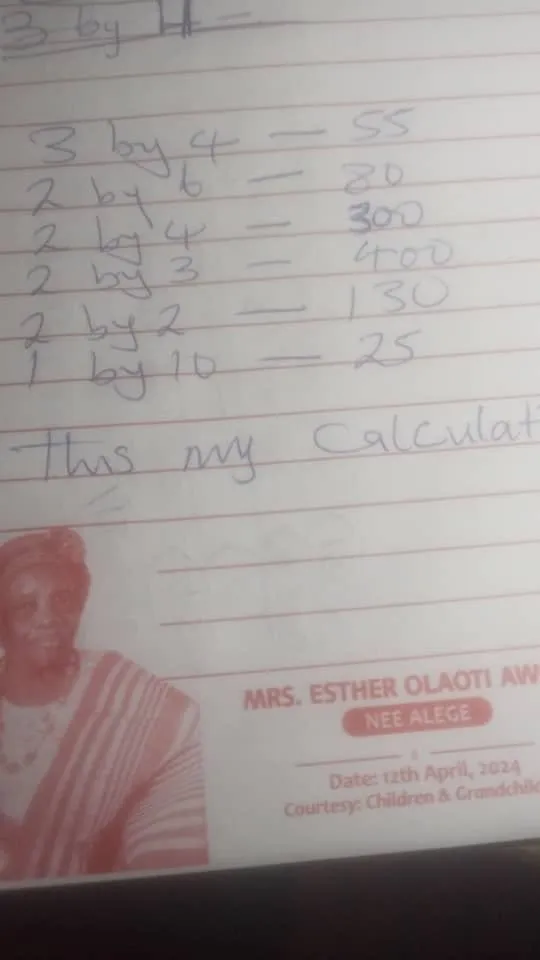 3 by 4 —
3 by 4 — 55
2 by 6 — 80
2 by 4 — 300
2 by 3 — 400
2 by 2 — 130
1 by 10 — 25
This my Calculat
MRS. ESTHER OLAOTI AW
NEE ALEGE
Date: 12th April, 2024
Courtesy: Children & Grandchild